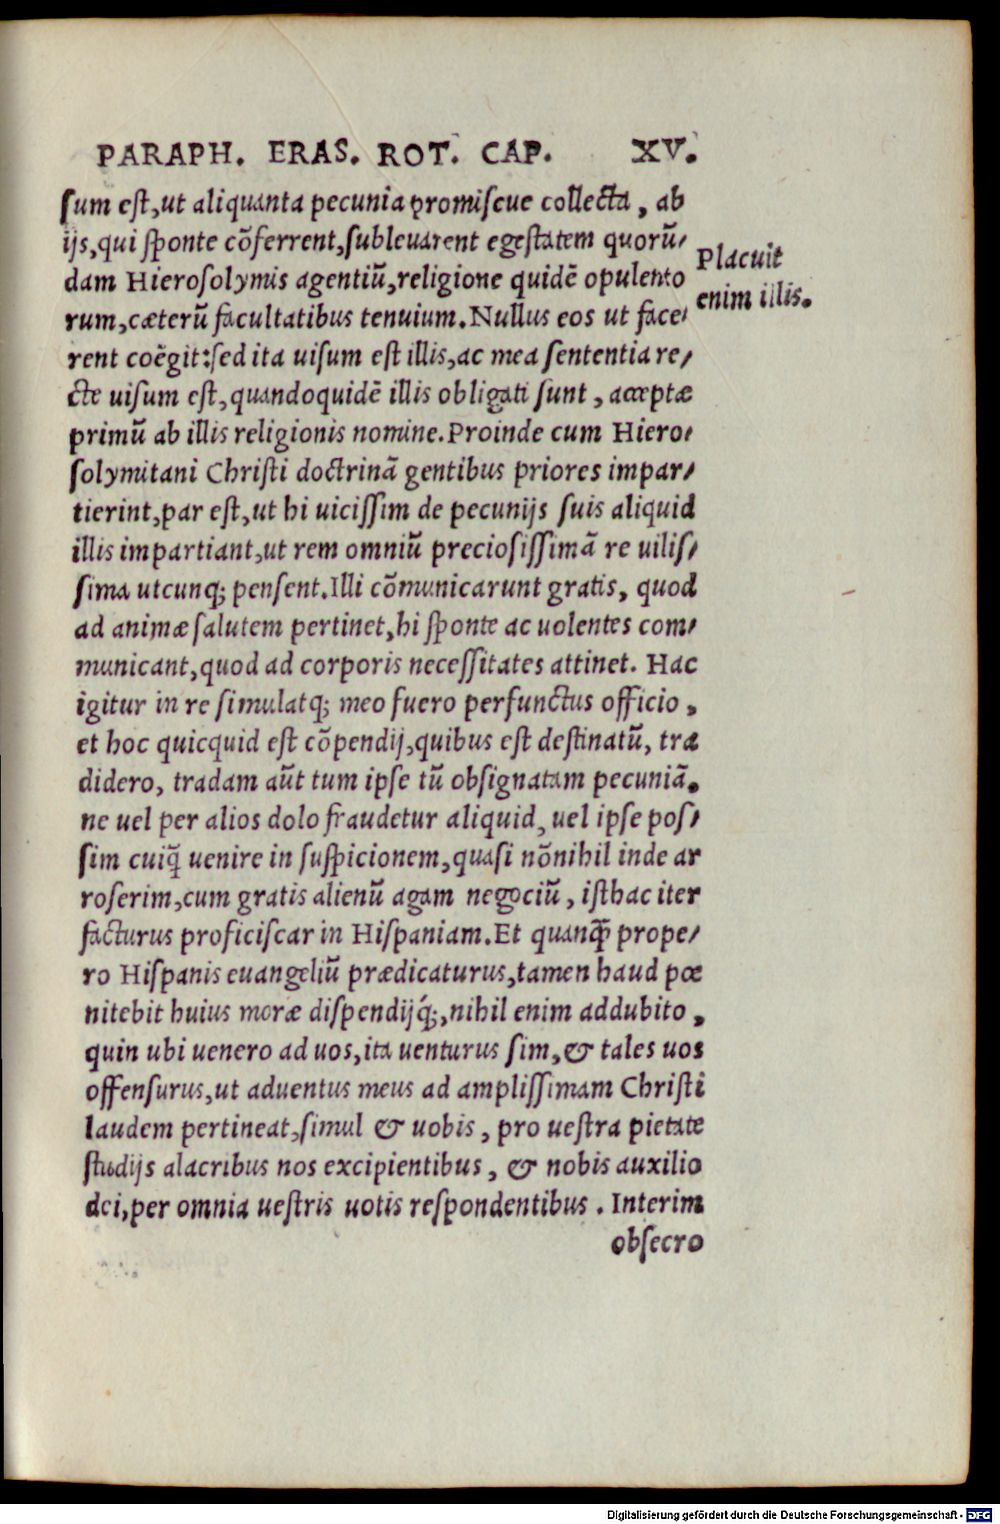 PARAPH. ERAS. ROT. CAP. XV.
ſum eſt,ut aliquanta pecunia ꝓromiſcue collecta, ab
ijs,qui ſponte cõferrent,ſubleuarent egeſtatem quorũ/
Placuit
dam Hieroſolymis agentiũ,religione quidẽ opulento
enim illis.
rum,cæterũ facultatibus tenuium.Nullus eos ut face/
rent coẽgit:ſed ita uiſum eſt illis,ac mea ſententia re/
cte uiſum eſt,quandoquidẽ illis obligati ſunt, acceptæ
primũ ab illis religionis nomine.Proinde cum Hiero/
ſolymitani Chriſti doctrinã gentibus priores impar/
tierint,par eſt,ut hi uiciſſim de pecunijs ſuis aliquid
illis impartiant,ut rem omniũ precioſiſſimã re uiliſ/
ſima utcunq; penſent.Illi cõmunicarunt gratis, quod
ad animæ ſalutem pertinet,hi ſponte ac uolentes com/
municant,quod ad corporis neceſſitates attinet. Hac
igitur in re ſimulatq; meo fuero perfunctus officio,
et hoc quicquid eſt cõpendij,quibus eſt deſtinatũ, tra
didero, tradam aũt tum ipſe tũ obſignatam pecuniã.
ne uel per alios dolo fraudetur aliquid, uel ipſe poſ/
ſim cuiq̃ uenire in ſuſpicionem,quaſi nõnihil inde ar
roſerim,cum gratis alienũ agam negociũ, iſthac iter
facturus proficiſcar in Hiſpaniam.Et quanq̃ prope/
ro Hiſpanis euangeliũ prædicaturus,tamen haud pœ
nitebit huius moræ diſpendijq́;,nihil enim addubito,
quin ubi uenero ad uos,ita uenturus ſim,& tales uos
offenſurus,ut aduentus meus ad ampliſſimam Chriſti
laudem pertineat,ſimul & uobis, pro ueſtra pietate
ſtudijs alacribus nos excipientibus, & nobis auxilio
dei,per omnia ueſtris uotis reſpondentibus. Interim
obſecro
Digitalisierung gefördert durch die Deutsche Forschungsgemeinschaft - DFG